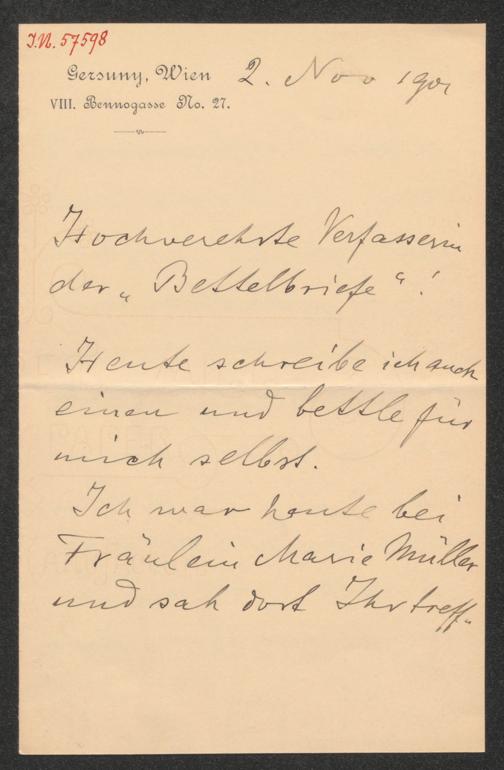 I.N. 57598
Gersuny, Wien 2. Nov 1901
VIII. Bennogasse No. 27.
Hochverehrte Verfasserin
der „Bettelbriefe“!
Heute schreibe ich auch
einen und bettle für
mich selbst.
Ich war heute bei
Fräulein Marie Müller
und sah dort Ihr treff„